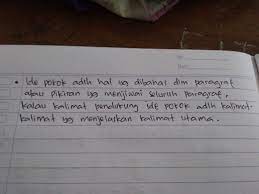 • Ide pokok adlh hal yg dibahas dlm paragraf
atau pikiran yg menjiwai seluruh paragraf,
kalau kalimat pendukung ide pokok adlh kalimat-
kalimat yg menjelaskan kalimat utama.